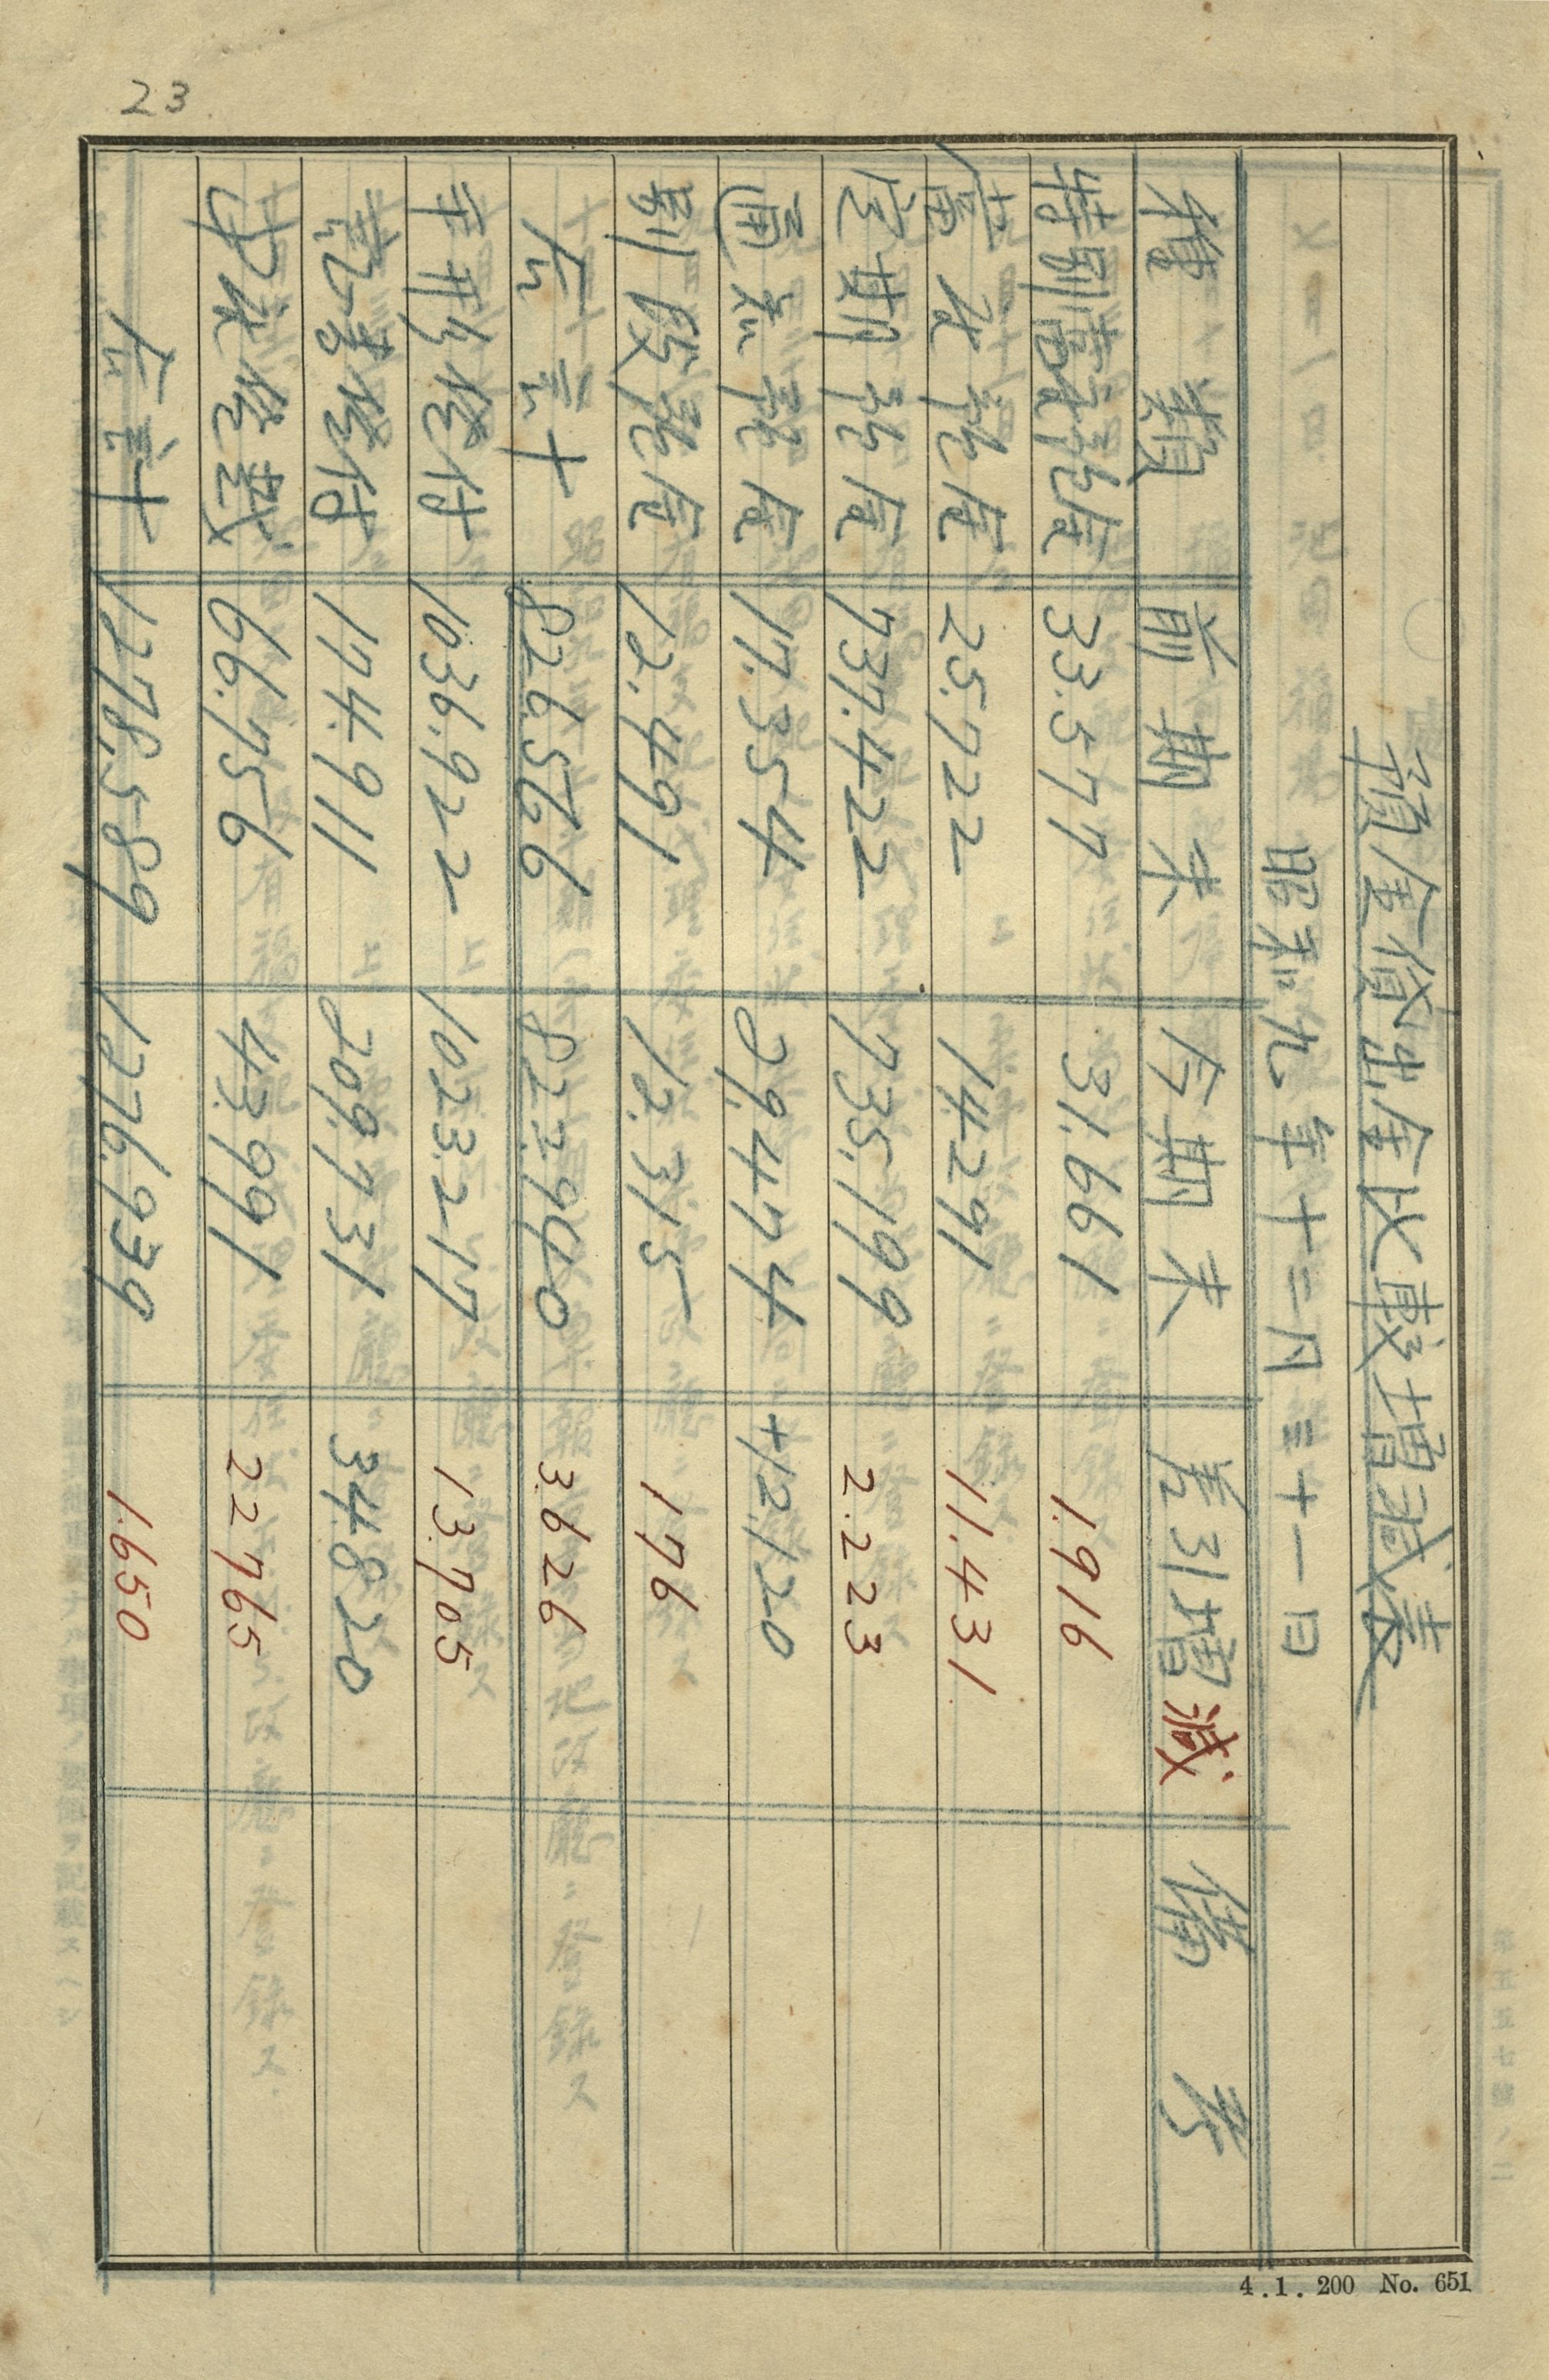 23
預金貸出金比較増減表
昭和九年十二月三十一日
種類 前期末 今期末 差引増減 備考
特別當座預金 33.577 31.661 1.916
當座預金 25.722 14.291 11.431
定期預金 737.422 735.199 2.223
通知預金 17.354 29.474 +12.120
別段預金 12.491 12.315 176
合計 826.566 822.940 3.626
手形貸付 1036.922 1023.217 13.705
証書貸付 174.911 209.731 34.820
当座貸越 66.756 43.991 22.765
合計 1278.589 1276.939 1.650
4.1.200 No. 651